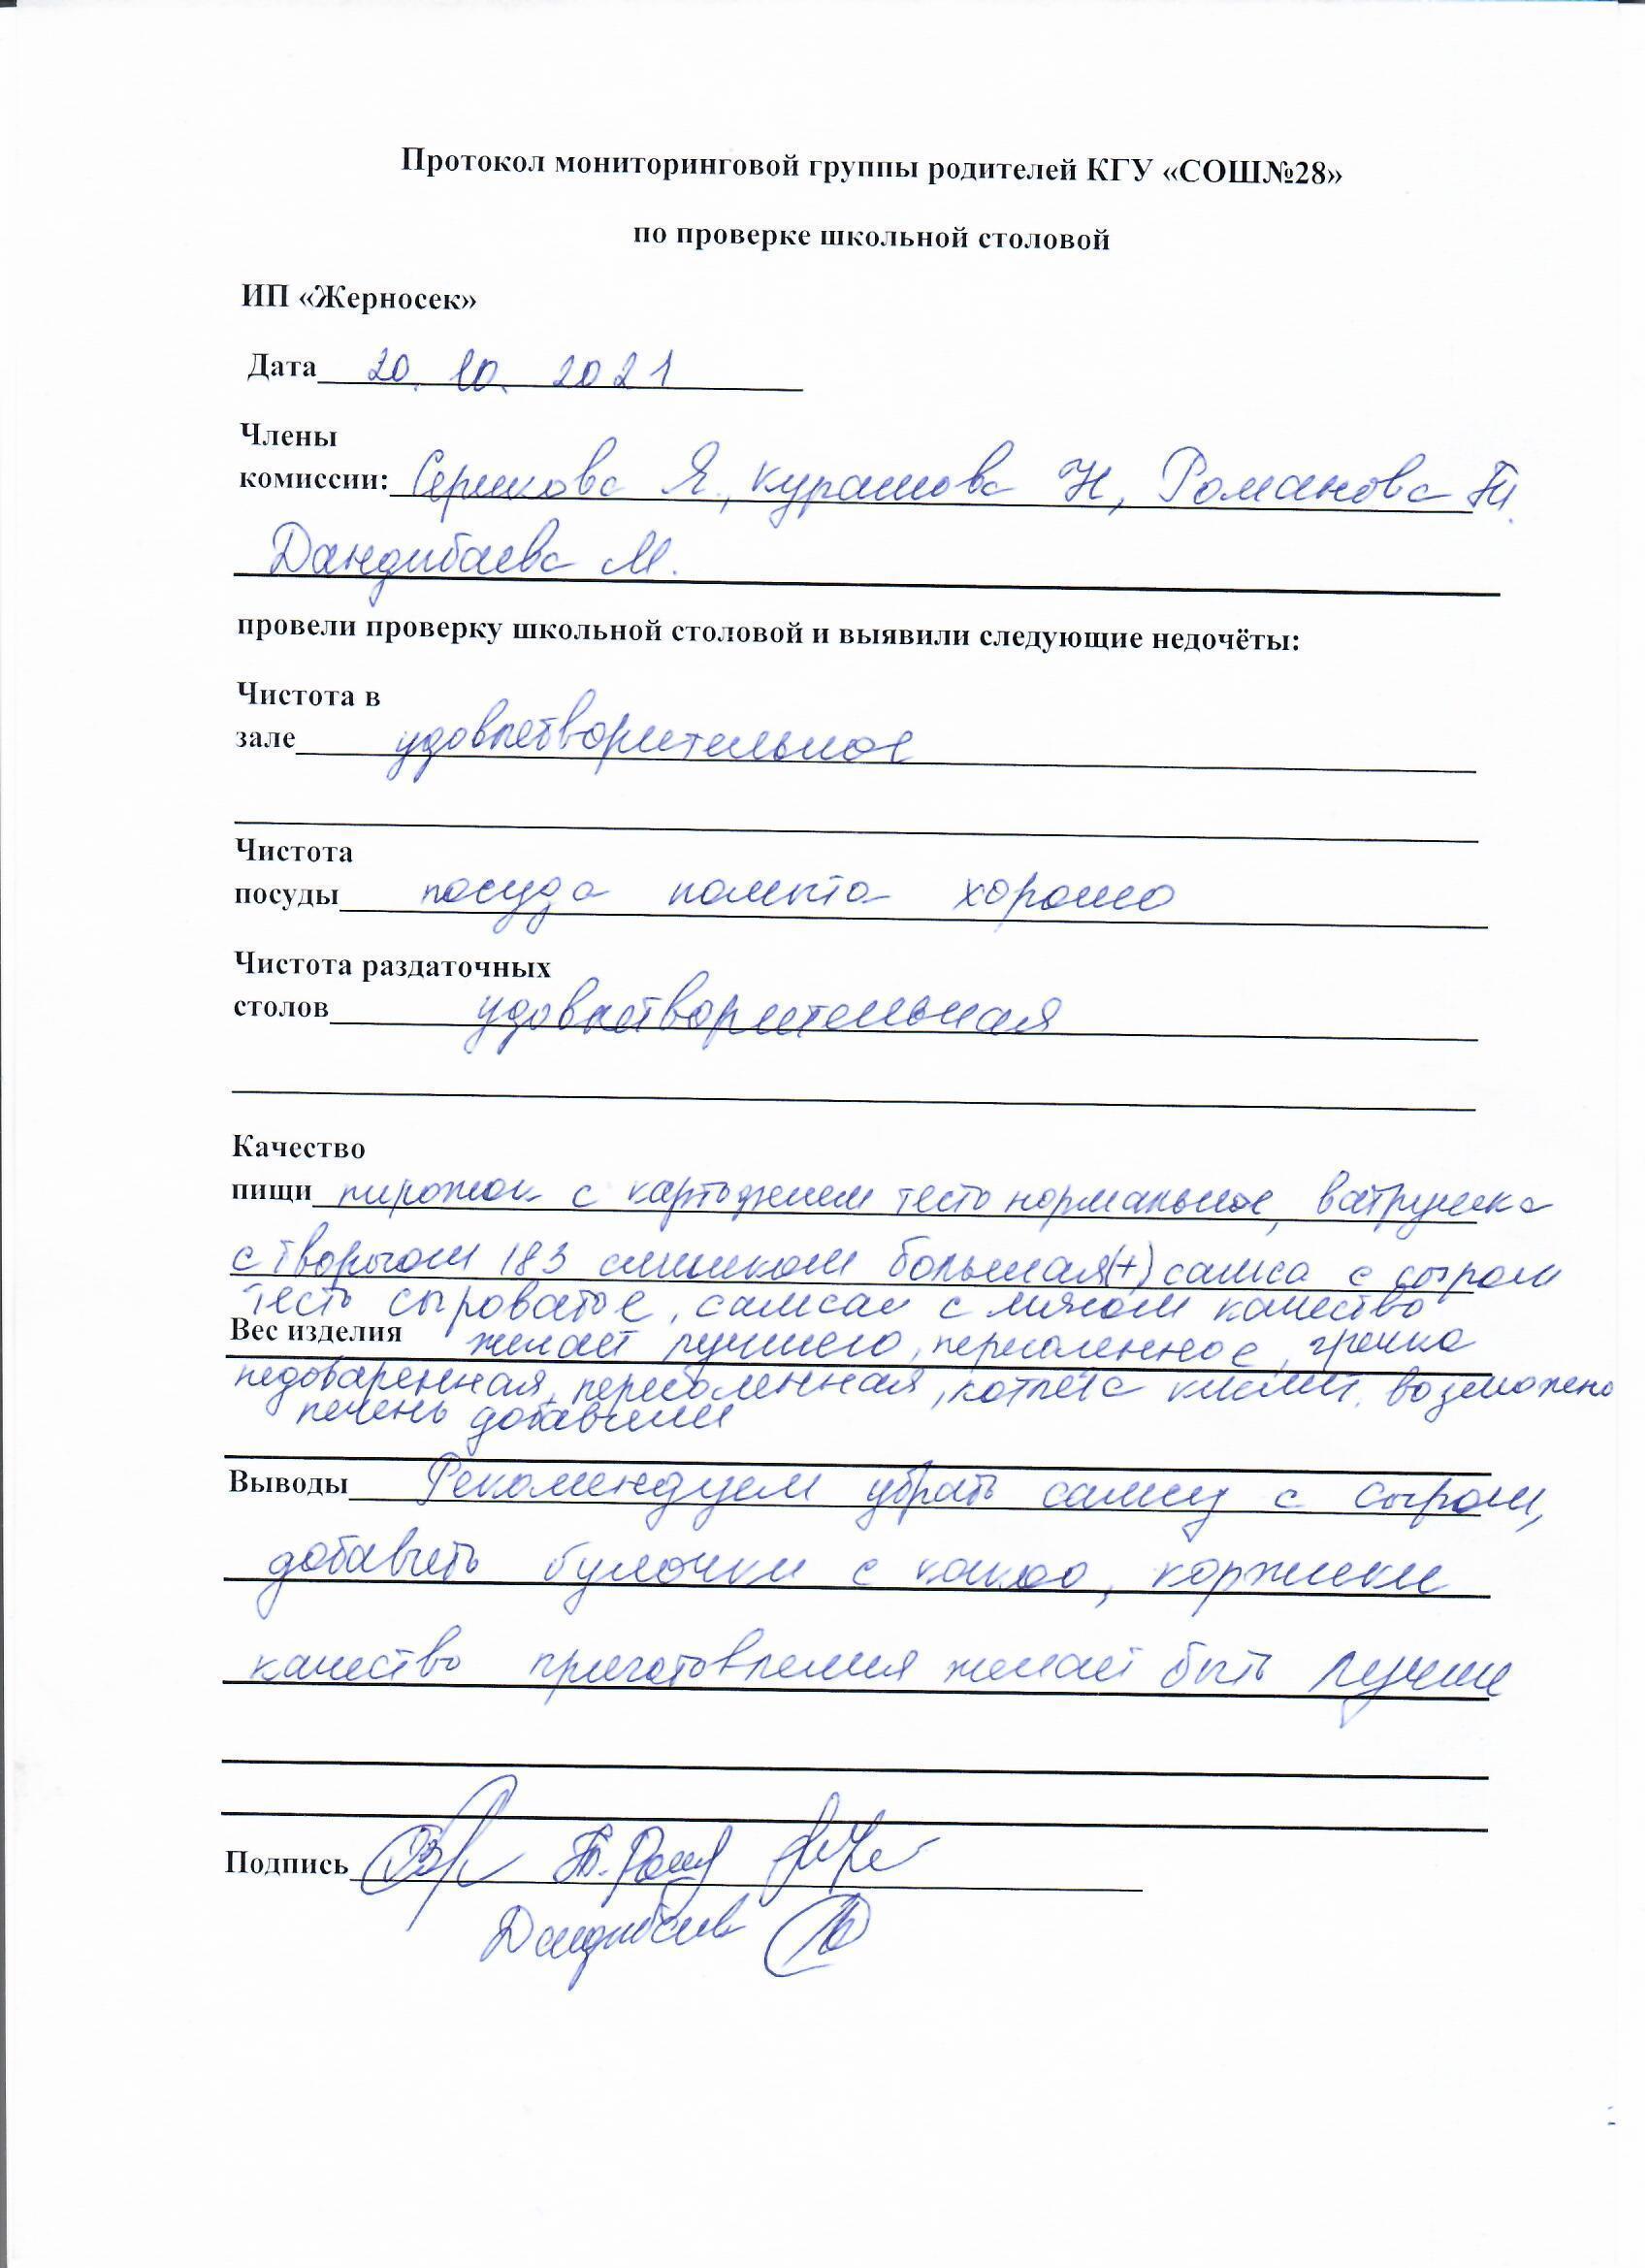 Протокол мониторинговой группы родителей КГУ «СОШ№28»
по проверке школьной столовой
ИП «Жерносек»
Дата 20. 10. 2021
Члены
комиссии: Серикова Я., Курашова Н, Романова Т.
Дандибаева М.
провели проверку школьной столовой и выявили следующие недочёты:
Чистота в
зале удовлетворительное
Чистота
посуды посуда помыта хорошо
Чистота раздаточных
столов удовлетворительная
Качество
пищи пирожок с картофелем тесто нормальное, ватрушка
с творогом 183 слишком большая(+) самса с сыром
тесто сыроватое, самсаи с мясом качество
Вес изделия желает лучшего, пересоленное, гречка
недоваренная, пересоленная, котлета кислит. возможено
печень добавили
Выводы Рекомендуем убрать самсу с сыром,
добавить булочки с какао, коржики
качество приготовления желает быть лучше
Подпись Т. Ром
Дандибаева